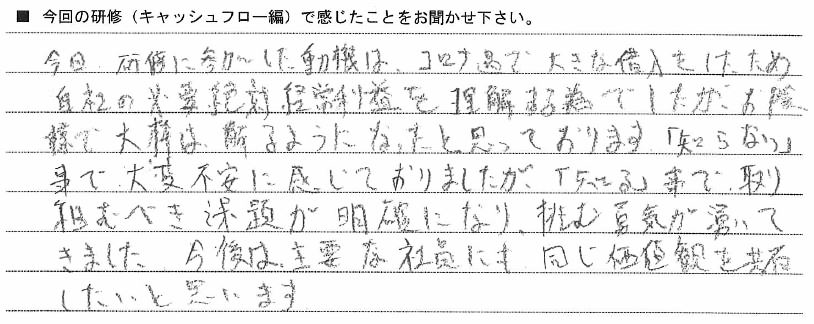 ■ 今回の研修（キャッシュフロー編）で感じたことをお聞かせ下さい。
今回、研修に参加した動機は、コロナ過で大きな借入をしたため
自社の 経常利益を理解する為でしたが、お陰
様で大枠は、解るようになったと思っております。「知らない」
事で、大変不安に感じておりましたが、「知る」事で、取り
組むべき課題が明確になり、挑む勇気が湧いて
きました。今後は、主要な社員にも同じ価値観を共有
したいと思います